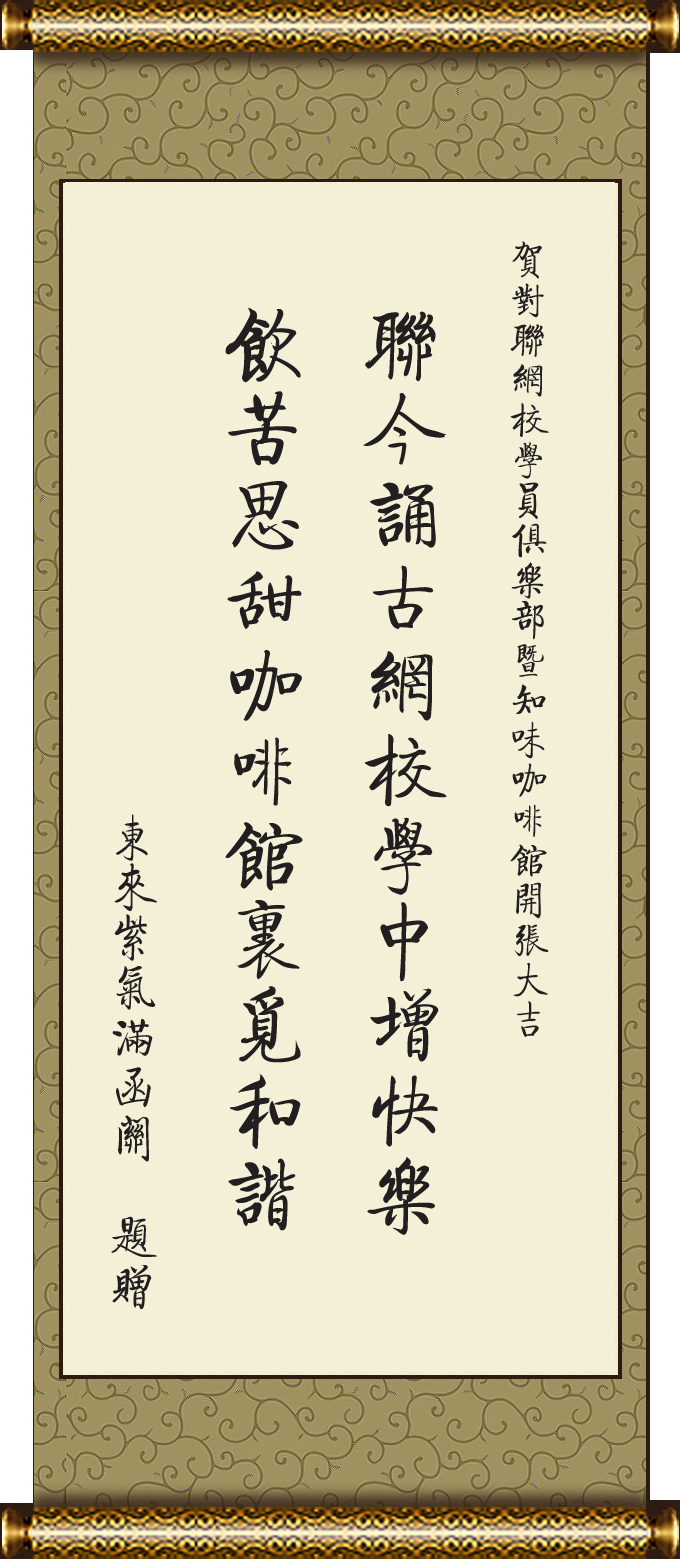 賀對聯網校學員俱樂部暨知味咖啡館開張大吉
聯今誦古網校學中增快樂
飲苦思甜咖啡館裏覓和諧
東來紫氣滿函關 題贈